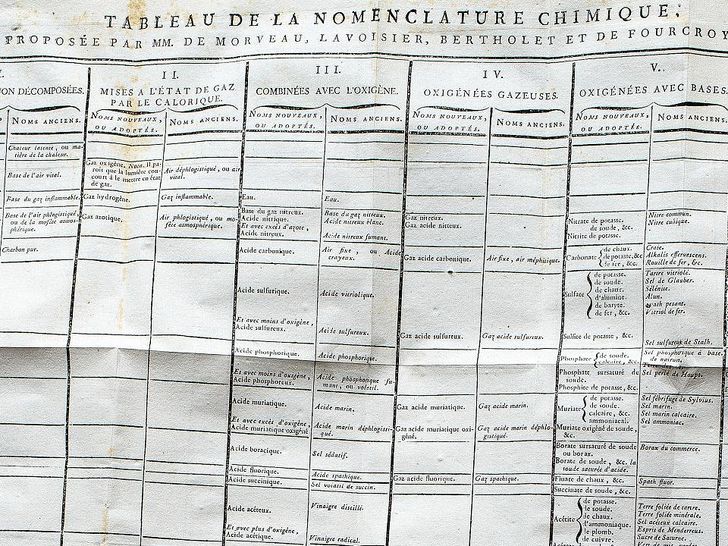 TABLEAU DE LA NOMENCLATURE CHIMIQUE,
PROPOSÉE PAR MM. DE MORVEAU, LAVOISIER, BERTHOLET ET DE FOURCROY
I I.
I I I.
I V.
V.
NON DÉCOMPOSÉES.
MISES A L'ÉTAT DE GAZ
PAR LE CALORIQUE.
COMBINÉES AVEC L'OXIGÈNE.
OXIGÉNÉES GAZEUSES.
OXIGÉNÉES AVEC BASES.
NOMS ANCIENS.
NOMS NOUVEAUX,
OU ADOPTÉS.
NOMS ANCIENS.
NOMS NOUVEAUX,
OU ADOPTÉS.
NOMS ANCIENS.
NOMS NOUVEAUX,
OU ADOPTÉS.
NOMS ANCIENS.
NOMS NOUVEAUX,
OU ADOPTÉS.
NOMS ANCIENS.
Chaleur latente, ou ma-
tière de la chaleur.
Base de l'air vital.
Base du gaz inflammable.
Base de l'air phlogistiqué,
ou de la mofète atmos-
phérique.
Charbon pur.
Gaz oxigène. NOTA. Il pa-
roit que la lumière con-
court à le mettre en état
de gaz.
Gaz hydrogène.
Gaz azotique.
Air déphlogistiqué, ou air
vital.
Gaz inflammable.
Air phlogistiqué, ou mo-
fète atmosphérique.
Eau.
Base du gaz nitreux.
Acide nitrique.
Et avec excès d'azote,
Acide nitreux.
Acide carbonique.
Acide sulfurique.
Et avec moins d'oxigène,
Acide sulfureux.
Acide phosphorique.
Et avec moins d'oxigène,
Acide phosphoreux.
Acide muriatique.
Et avec excès d'oxigène,
Acide muriatique oxigéné.
Acide boracique.
Acide fluorique.
Acide succinique.
Acide acéteux.
Et avec plus d'oxigène,
Acide acétique.
Eau.
Base du gaz nitreux.
Acide nitreux blanc.
Acide nitreux fumant.
Air fixe, ou Acide
crayeux.
Acide vitriolique.
Acide sulfureux.
Acide phosphorique.
Acide phosphorique fu-
mant, ou volatil.
Acide marin.
Acide marin déphlogisti-
qué.
Sel sédatif.
Acide spathique.
Sel volatil de succin.
Vinaigre distillé.
Vinaigre radical.
Gaz nitreux.
Gaz acide nitreux.
Gaz acide carbonique.
Gaz acide sulfureux.
Gaz acide muriatique.
Gaz acide muriatique oxi-
géné.
Gaz acide fluorique.
Air fixe, air méphitique.
Gaz acide sulfureux.
Gaz acide marin.
Gaz acide marin déphlo-
gistiqué.
Gaz spathique.
Nitrate de potasse.
de soude, &c.
Nitrite de potasse.
Carbonate
de chaux.
de potasse, &c.
de fer, &c.
Sulfate
de potasse.
de soude.
de chaux.
d'alumine.
de baryte.
de fer, &c.
Sulfite de potasse, &c.
Phosphate
de soude.
Phosphate sursaturé de
soude.
Phosphite de potasse, &c.
Muriate
de potasse.
de soude.
calcaire,
ammoniacal.
Muriate oxigéné de soude,
&c.
Borate sursaturé de soude
ou borax.
Borate de soude, &c. la
soude saturée d'acide.
Fluate de chaux, &c.
Succinate de soude, &c.
Acétite
de potasse.
de soude.
de chaux.
d'ammoniaque.
de plomb.
de cuivre.
Nitre commun.
Nitre cubique.
Craie.
Alkalis effervescens.
Rouille de fer, &c.
Tartre vitriolé.
Sel de Glauber.
Sélénite.
Alun.
Spath pesant.
Vitriol de fer.
Sel sulfureux de Stalh.
Sel phosphorique à base
de natrum.
Sel perlé de Haupt.
Sel fébrifuge de Sylvius.
Sel marin.
Sel marin calcaire.
Sel ammoniac.
Borax du commerce.
Spath fluor.
Terre foliée de tartre.
Terre foliée minérale.
Sel acéteux calcaire.
Esprit de Mendererus.
Sucre de Saturne.